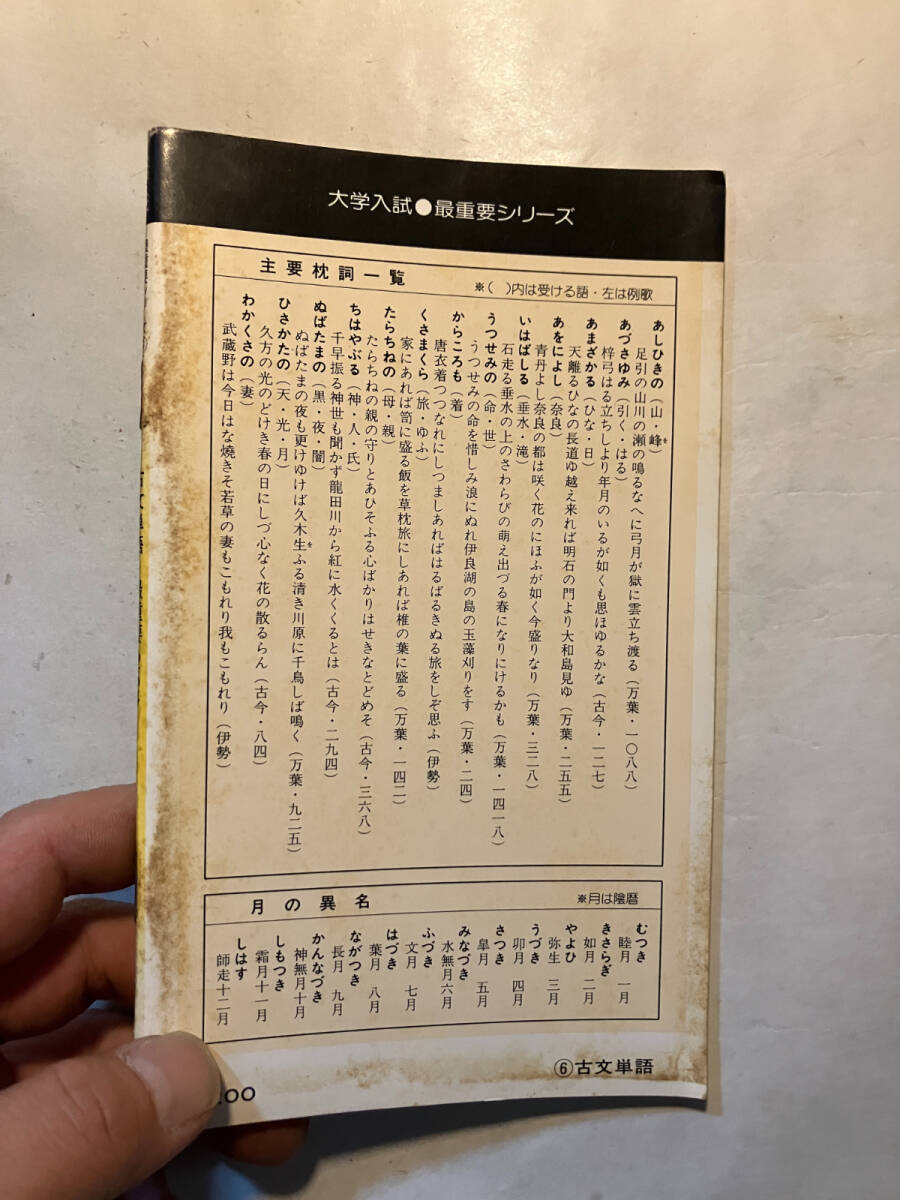 大学入試●最重要シリーズ
主要枕詞一覧
※( )内は受ける語・左は例歌
あしひきの(山・峰を)
足引の山川の瀬の鳴るなへに弓月が獄に雲立ち渡る(万葉・一〇八八)
あづさゆみ(引く・はる)
梓弓はる立ちしより年月のいるが如くも思ほゆるかな(古今・一二七)
あまざかる(ひな・日)
天離るひなの長道ゆ越え来れば明石の門より大和島見ゆ(万葉・二五五)
あをによし(奈良)
青丹よし奈良の都は咲く花のにほふが如く今盛りなり(万葉・三二八)
いはばしる(垂水・滝)
石走る垂水の上のさわらびの萌え出づる春になりにけるかも(万葉・一四一八)
うつせみの(命・世)
うつせみの命を惜しみ浪にぬれ伊良湖の島の玉藻刈りをす(万葉・二四)
からころも(着)
唐衣着つつなれにしつましあればはるばるきぬる旅をしぞ思ふ(伊勢)
くさまくら(旅・ゆふ)
家にあれば笥に盛る飯を草枕旅にしあれば椎の葉に盛る(万葉・一四二)
たらちねの(母・親)
たらちねの親の守りとあひそふる心ばかりはせきなとどめそ(古今・三六八)
ちはやぶる(神・人・氏)
千早振る神世も聞かず龍田川から紅に水くくるとは(古今・二九四)
ぬばたまの(黒・夜・闇)
ぬばたまの夜も更けゆけば久木生をふる清き川原に千鳥しば鳴く(万葉・九二五)
ひさかたの(天・光・月)
久方の光のどけき春の日にしづ心なく花の散るらん(古今・八四)
わかくさの(妻)
武蔵野は今日はな焼きそ若草の妻もこもれり我もこもれり(伊勢)
月の異名
※月は陰暦
むつき
睦月 一月
きさらぎ
如月 二月
やよひ
弥生 三月
うづき
卯月 四月
さつき
皐月 五月
みなづき
水無月六月
ふづき
文月 七月
はづき
葉月 八月
ながつき
長月 九月
かんなづき
神無月十月
しもつき
霜月十一月
しはす
師走十二月
⑥古文単語
00